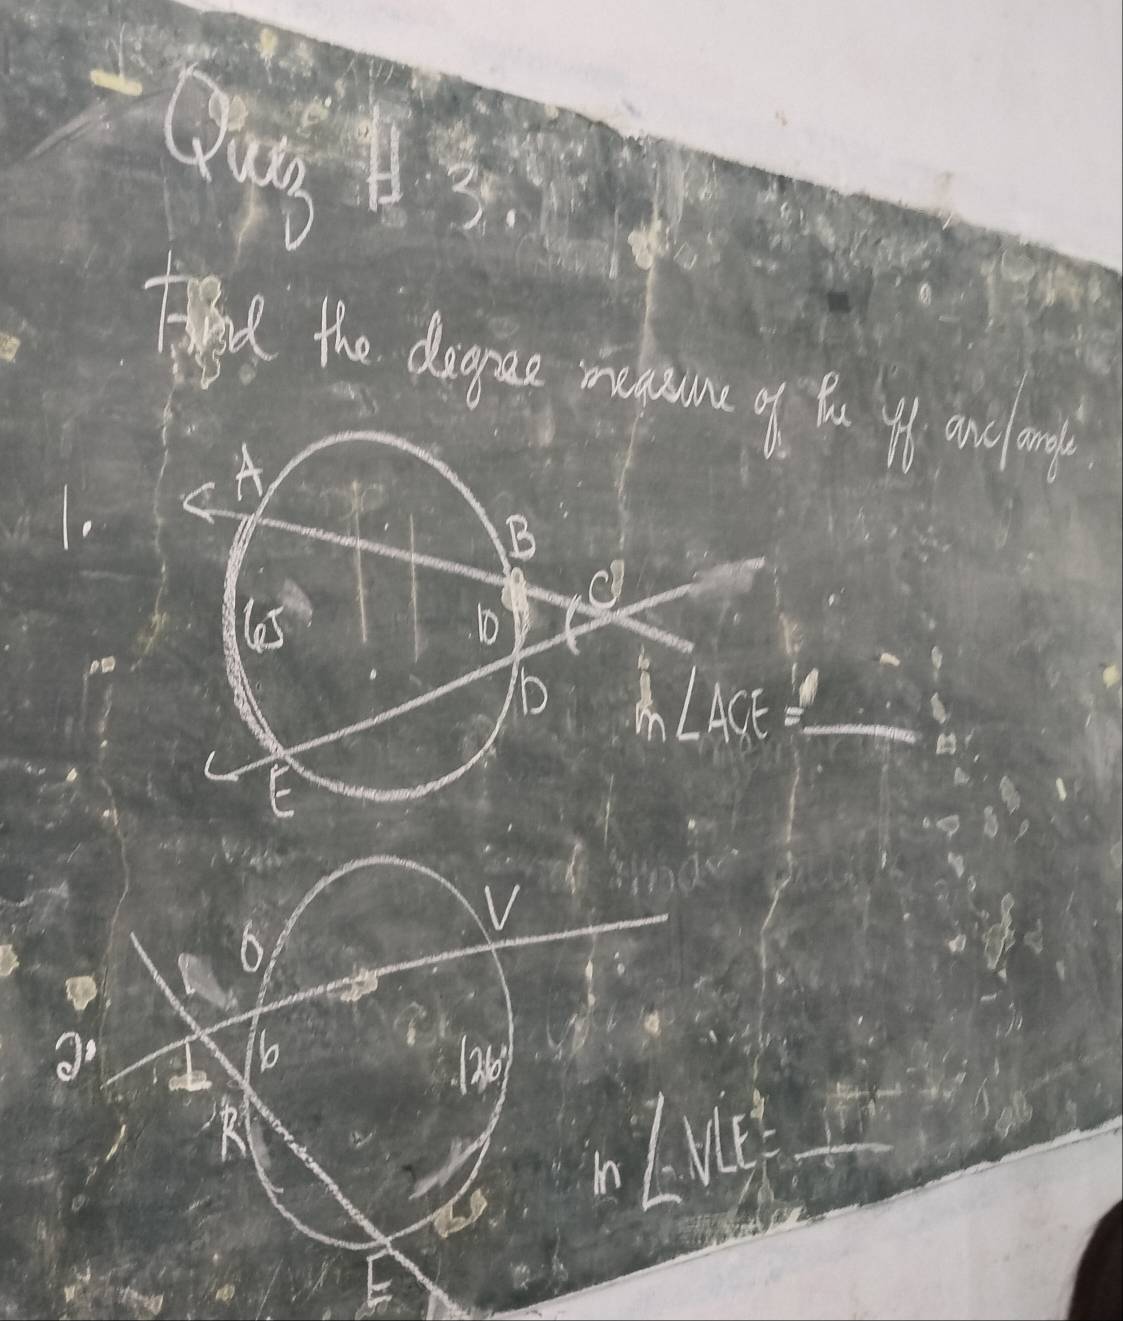 Quiz # 3.
Find the degree measure of the ff. arc/angle.
1.
A
B
65
10
C
D
E
m∠ACE = ____
2.
O
V
L
6
126
R
E
m∠VLE = ____